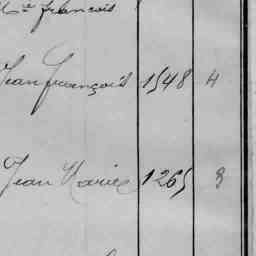 françois
Jean françois 1548 4
Jean Marie 1265 8